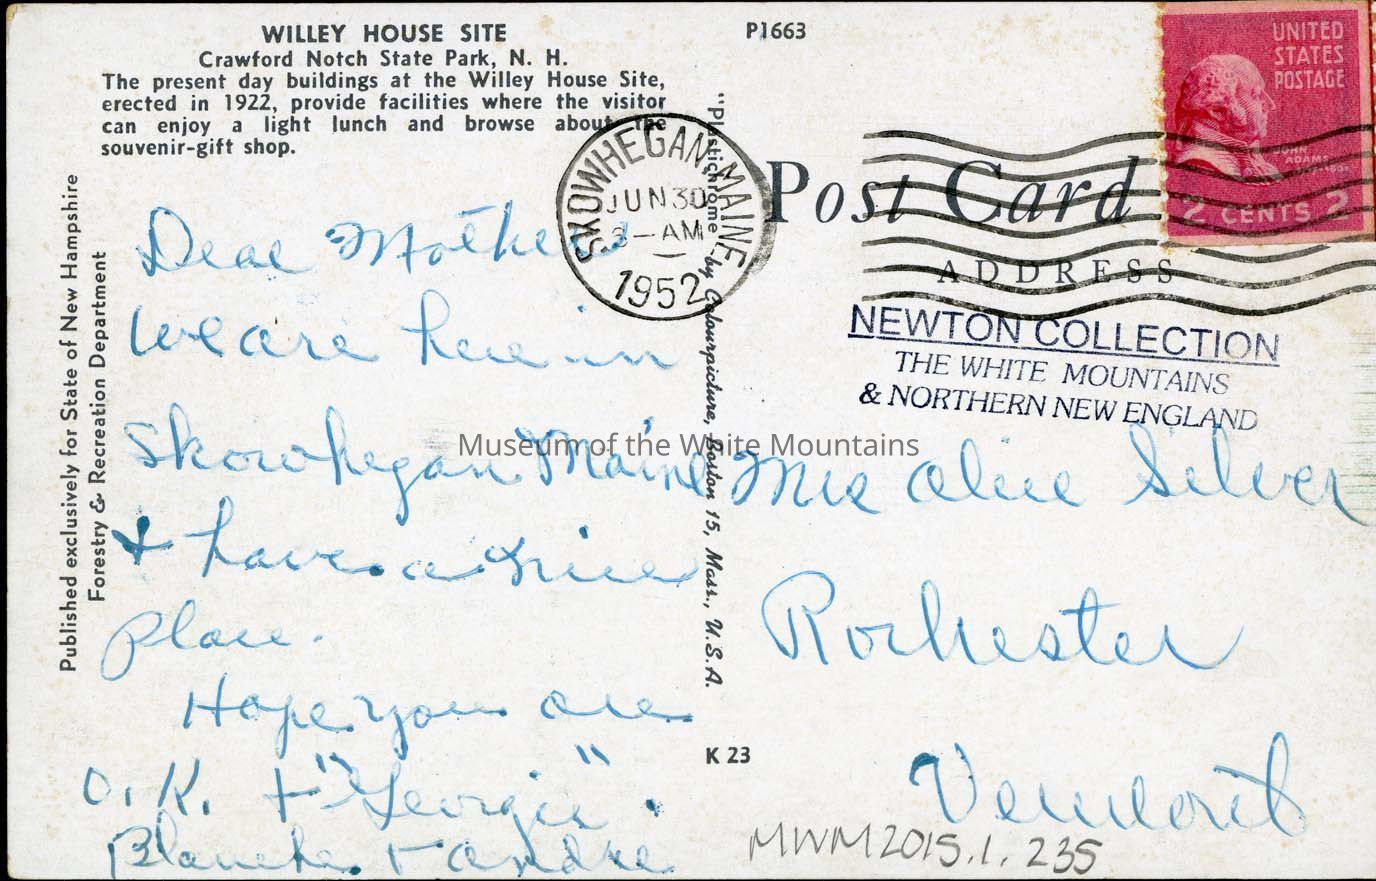 WILLEY HOUSE SITE
Crawford Notch State Park, N. H.
The present day buildings at the Willey House Site,
erected in 1922, provide facilities where the visitor
can enjoy a light lunch and browse about the
souvenir-gift shop.
P1663
UNITED
STATES
POSTAGE
JOHN
ADAMS
2 CENTS 2
SKOWHEGAN, MAINE
JUN 30
AM
1952
Post Card
ADDRESS
NEWTON COLLECTION
THE WHITE MOUNTAINS
& NORTHERN NEW ENGLAND
Published exclusively for State of New Hampshire
Forestry & Recreation Department
"Plastichrome" by Colourpicture, Boston 15, Mass., U.S.A.
Dear Mother
We are here in
Skowhegan Maine
+ have a nice
place.
Hope you are
O.K. + "Georgie".
Blanche + Andre
Museum of the White Mountains
Mrs Aline Silver
Rochester
Vermont
K 23
MWM2015.1.235